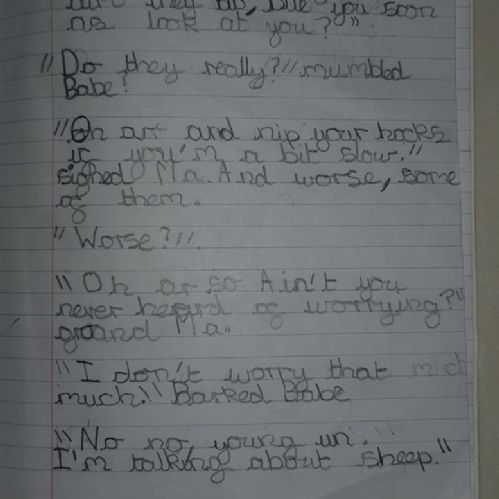 they as, but you soon
as look at you?"
"Do they really?" mumbled
Babe!
"Oh ar and nip your hocks
if you'm a bit slow."
sighed Ma. And worse, some
of them.
"Worse?".
"Oh ar so Ain't you
never heard of worrying?"
groand Ma.
"I don't worry that mich
much." Barked Babe
"No no, young un.
I'm talking about sheep."